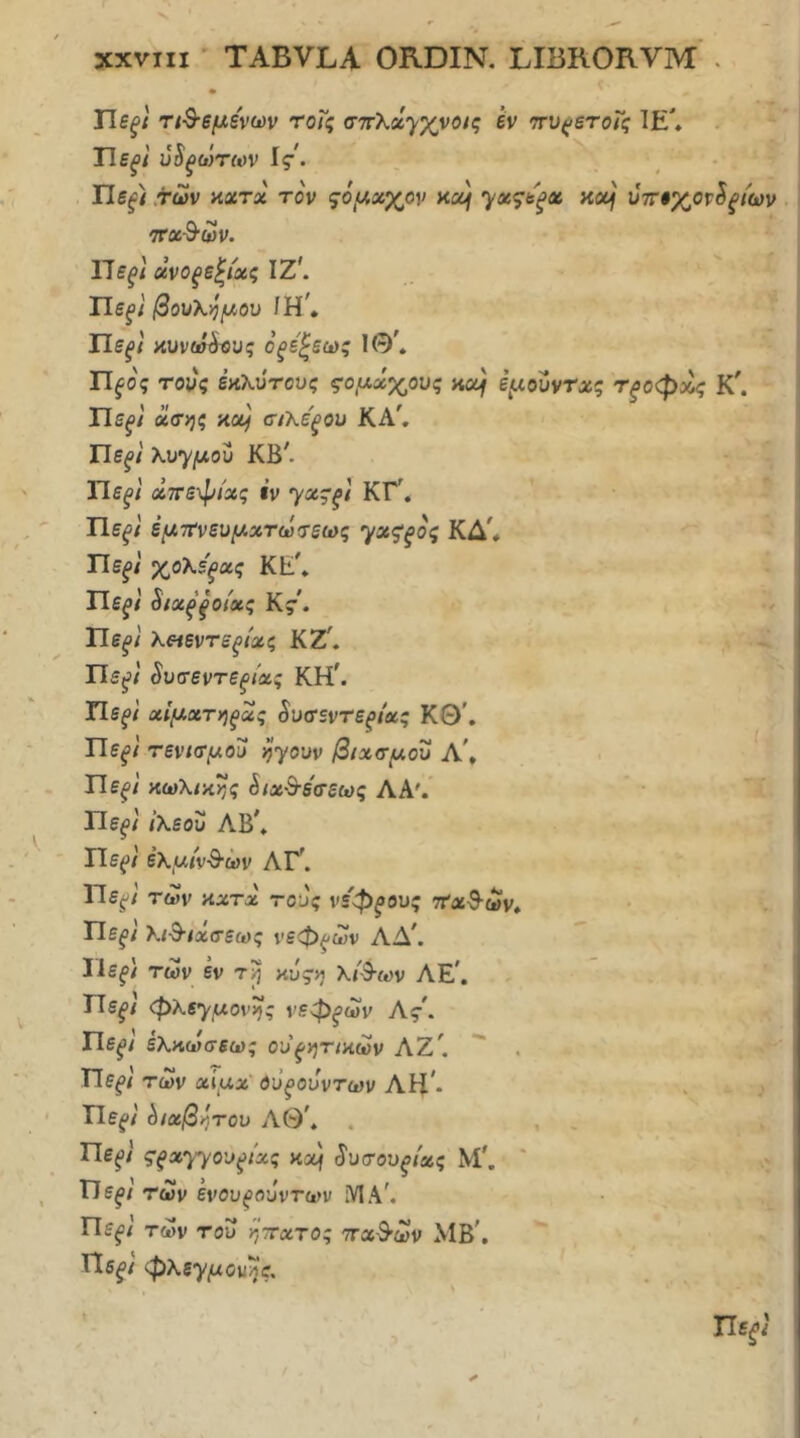 XXVIII TABVLA ORDIN. LIBRORVM
Περὶ τιθεμένων τοῖς σπλάγχνοις ἐν πυρετοῖς ΙΕ΄.
Περὶ ὑδρώτων Ιϛ΄.
Περὶ τῶν κατὰ τὸν ϛόμαχον καὶ γαϛέρα καὶ ὑποχονδρίων
παθῶν.
Περὶ ἀνορεξίας ΙΖ΄.
Περὶ βουλήμου ΙΗ΄.
Περὶ κυνώδους ὀρέξεως ΙΘ΄.
Πρὸς τοὺς ἐκλύτους ϛομάχους καὶ ἐμοῦντας τροφὰς Κ΄.
Περὶ ἄσης καὶ σιλέρου ΚΑ΄.
Περὶ λυγμοῦ ΚΒ΄.
Περὶ ἀπεψίας ἐν γαϛρὶ ΚΓ΄.
Περὶ ἐμπνευματώσεως γαϛρὸς ΚΔ΄.
Περὶ χολέρας ΚΕ΄.
Περὶ διαῤῥοίας Κϛ΄.
Περὶ λειεντερίας ΚΖ΄.
Περὶ δυσεντερίας ΚΗ΄.
Περὶ αἱματηρᾶς δυσεντερίας ΚΘ΄.
Περὶ τενισμοῦ ἤγουν βιασμοῦ Λ΄,
Περὶ κωλικῆς διαθέσεως ΛΑ΄.
Περὶ ἰλεοῦ ΛΒ΄.
Περὶ ἑλμίνθων ΛΓ΄.
Περὶ τῶν κατὰ τοὺς νέφρους παθῶν.
Περὶ λιθιάσεως νεφρῶν ΛΔ΄.
Περὶ τῶν ἐν τῇ κύϛῃ λίθων ΛΕ΄.
Περὶ φλεγμονῆς νεφρῶν Λϛ΄.
Περὶ ἑλκώσεως οὐρητικῶν ΛΖ΄.
Περὶ τῶν αἷμα ὀυρούντων ΛΗ΄.
Περὶ διαβήτου ΛΘ΄.
Περὶ ϛραγγουρίας καὶ δυσουρίας Μ΄.
Περὶ τῶν ἐνουρούντων ΜΑ΄.
Περὶ τῶν τοῦ ἥπατος παθῶν ΜΒ΄.
Περὶ φλεγμονῆς.
Περὶ